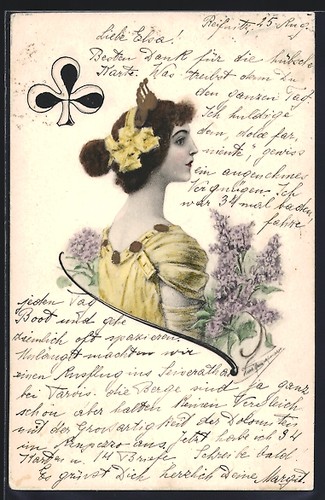 Reifnitz 25. Aug.
Liebe Elsa!
Besten Dank für die hübsche
Karte. Was treibst denn Du
den ganzen Tag.
Ich huldige
dem „dolce far
niente“, gewiss
ein angenehmes
Vergnügen. Ich
war 34 mal baden,
fahre
jeden Tag
Boot und gehe
ziemlich oft spazieren.
Unlängst machten wir
einen Ausflug ins Seiseratha
bei Tarvis. Die Berge sind ja ganz
schön aber halten keinen Vergleich
mit der Grossartigkeit der Dolomiten
im Ampezzo aus. Jetzt habe ich 34
Karten u. 14 Briefe. Schreibe bald!
Es grüsst Dich herzlich Deine Margit.